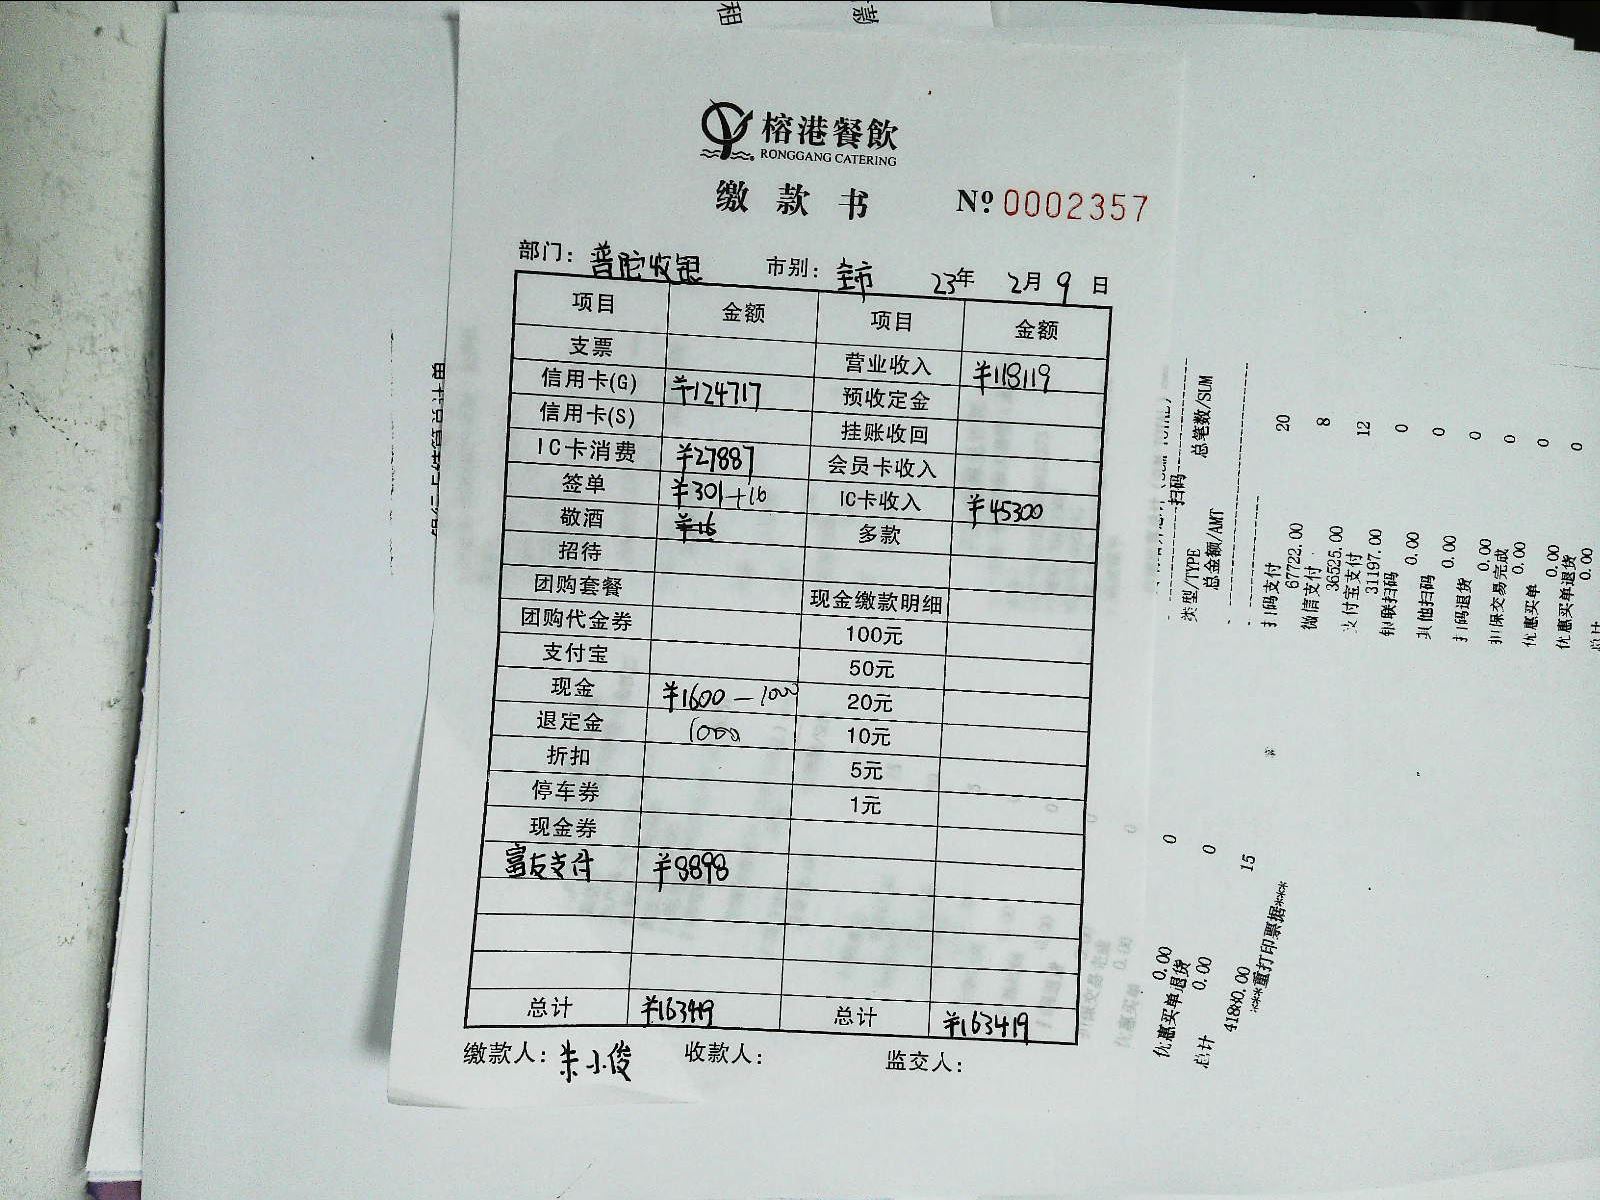 租
款
榕港餐飲
RONGGANG CATERING
缴款书 Nº 0002357
部门：普陀收银 市别：全市 23年 2月 9日
项目 金额 项目 金额
支票 营业收入 ¥118119
信用卡(G) ¥124717 预收定金
信用卡(S) 挂账收回
IC卡消费 ¥27887 会员卡收入
签单 ¥301+16 IC卡收入 ¥45300
敬酒 ¥16 多款
招待
团购套餐 现金缴款明细
团购代金券 100元
支付宝 50元
现金 ¥1600-1000 20元
退定金 1000 10元
折扣 5元
停车券 1元
现金券
富友支付 ¥8898
总计 ¥163419 总计 ¥163419
缴款人：朱小俊 收款人： 监交人：
扫码
类型/TYPE 总笔数/SUM
总金额/AMT
扫码支付 20
67722.00
微信支付 8
36525.00
支付宝支付 12
31197.00
银联扫码 0
0.00
其他扫码 0
0.00
扫码退货 0
0.00
担保交易完成 0
0.00
优惠买单 0
0.00
优惠买单退货 0
0.00
总计
0.00 0
优惠买单退货
0.00 0
总计
41880.00 15
***重打印票据***